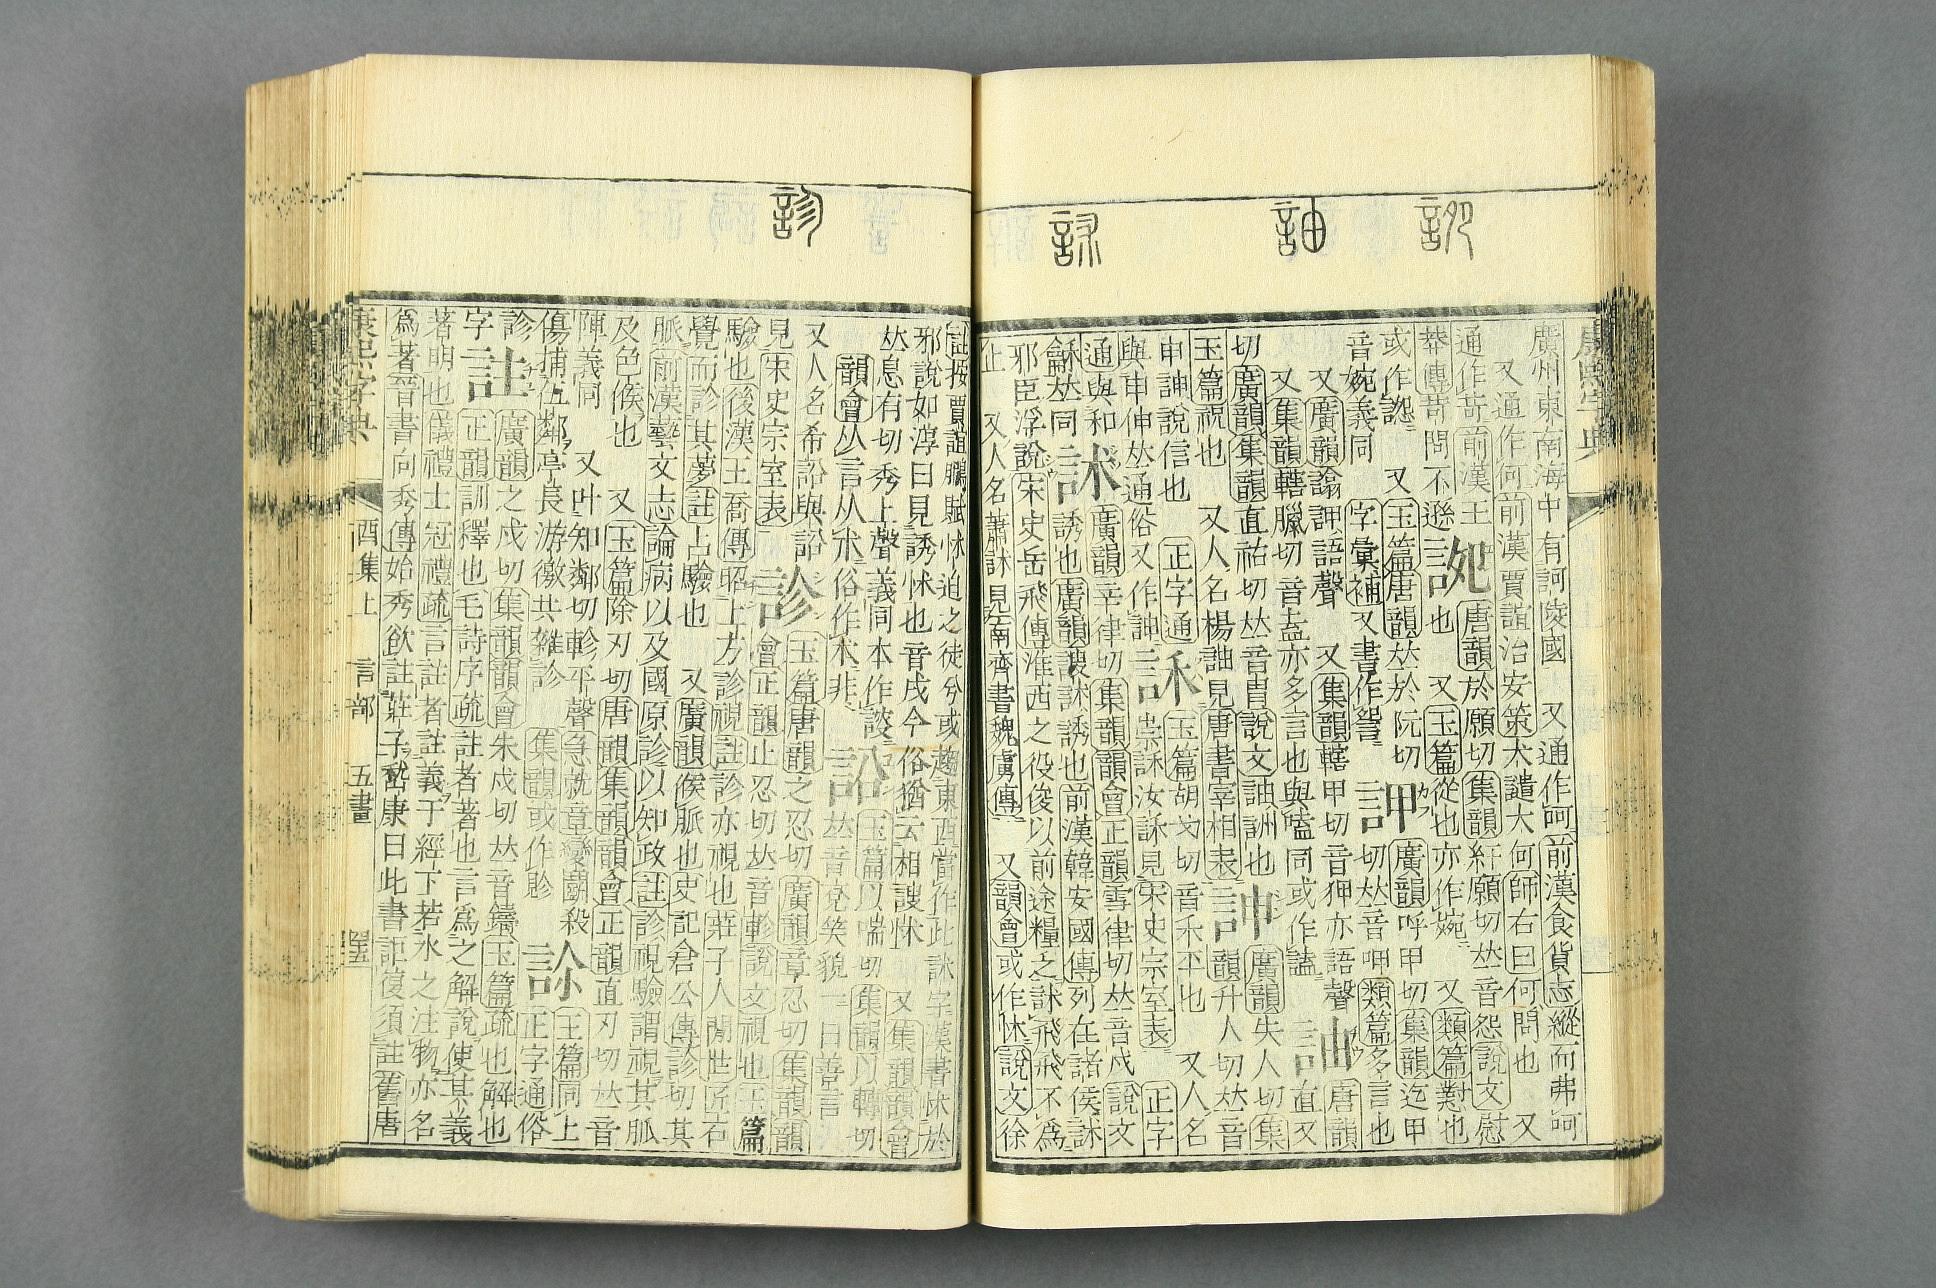 訑
訷
訹
廣州東南海中有訶陵國　又通作呵前漢食貨志縱而弗呵
又通作何前漢賈誼治安策大譴大何師右曰何問也　又
通作苛前漢王
莽傳苛問不遜
訑
唐韻於願切集韻紆願切𠀤音怨說文慰
也　又玉篇從也亦作婉　又類篇懟也
或作䛄　又玉篇唐韻𠀤於阮切
音婉義同　字彙補又書作
訶
廣韻呼甲切集韻迄甲
切𠀤音呷類篇多言也
又廣韻譫訶語聲　又集韻轄甲切音狎亦語聲
又集韻轄臘切音盍亦多言也與嗑同或作譫
訷
唐韻直又
切廣韻集韻直祐切𠀤音冑說文訷詶也
玉篇祝也　又人名楊訷見唐書宰相表
訷
廣韻失人切集
韻升人切𠀤音
申訷說信也　正字通
與申伸𠀤通俗又作訷
訸
玉篇胡戈切音禾平也　又人名
崇訸汝訸見宋史宗室表　正字
通與和
龢𠀤同
訹
廣韻辛律切集韻韻會正韻雪律切𠀤音戌　說文
誘也廣韻謏訹誘也前漢韓安國傳列在諸侯訹
邪臣浮說宋史岳飛傳淮西之役俊以前途糧乏訹飛飛不為
止　又人名蕭訹見南齊書魏虜傳　又韻會或作怵說文徐
診
註按賈誼鵩賦怵迫之徒兮或趨東西當作此訹字漢書怵於
邪說如淳曰見誘怵也音戌今俗猶云相謏怵　又集韻韻會
𠀤息有切秀上聲義同本作䛢
韻會从言从朮俗作木非
訡
玉篇以喘切　集韻以轉切
𠀤音兗笑貌一曰善言
又人名希訡與訡
見宋史宗室表
診
玉篇唐韻之忍切廣韻章忍切集韻韻
會正韻止忍切𠀤音軫說文視也玉篇
驗也後漢王喬傳詔上方診視註診亦視也莊子人閒世匠石
覺而診其夢註占驗也　又廣韻候脈也史記倉公傳診切其
脈前漢藝文志論病以及國原診以知政註診視驗謂視其脈
及色候也　又玉篇除刃切唐韻集韻韻會正韻直刃切𠀤音
陣義同　又叶知鄰切軫平聲急就章變鬭殺
傷捕伍鄰亭長游徼共雜診　集韻或作胗
訡
玉篇同上
正字通俗
診
字
註
廣韻之戍切集韻韻會朱戍切𠀤音鑄玉篇疏也解也
正韻訓釋也毛詩序疏註者著也言為之解說使其義
著明也儀禮士冠禮疏言註者註義于經下若水之注物亦名
為著晉書向秀傳始秀欲註莊子嵇康曰此書詎復須註舊唐
康熙字典　酉集上　言部　五畫
康熙字典